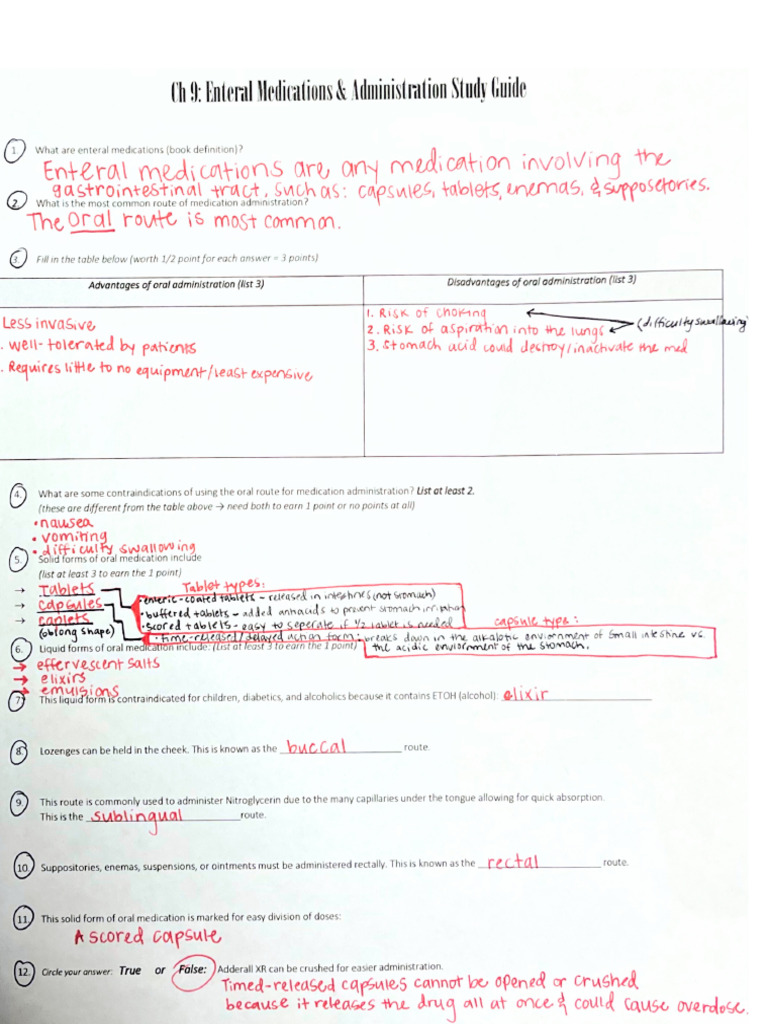 Ch 9: Enteral Medications & Administration Study Guide
1. What are enteral medications (book definition)?
Enteral medications are any medication involving the
gastrointestinal tract, such as: capsules, tablets, enemas, & supposetories.
2. What is the most common route of medication administration?
The oral route is most common.
3. Fill in the table below (worth 1/2 point for each answer = 3 points)
Advantages of oral administration (list 3)
Less invasive
. well-tolerated by patients
. Requires little to no equipment/least expensive
Disadvantages of oral administration (list 3)
1. Risk of choking
2. Risk of aspiration into the lungs
(difficulty swallowing
3. Stomach acid could destroy/inactivate the med
4. What are some contraindications of using the oral route for medication administration? List at least 2.
(these are different from the table above → need both to earn 1 point or no points at all)
• nausea
• vomiting
• difficulty swallowing
5. Solid forms of oral medication include
(list at least 3 to earn the 1 point)
→ Tablets
→ capsules
→ caplets
(oblong shape)
Tablet types:
• enteric-coated tablets - released in intestines (not stomach)
• buffered tablets - added antacids to prevent stomach irritation
• scored tablets - easy to seperate if 1/2 tablet is needed
capsule type:
• time-released/delayed action form: breaks down in the alkalotic environment of small intestine vs.
the acidic environment of the stomach.
6. Liquid forms of oral medication include: (List at least 3 to earn the 1 point)
→ effervescent salts
→ elixirs
→ emulsions
7. This liquid form is contraindicated for children, diabetics, and alcoholics because it contains ETOH (alcohol): elixir
8. Lozenges can be held in the cheek. This is known as the buccal route.
9. This route is commonly used to administer Nitroglycerin due to the many capillaries under the tongue allowing for quick absorption.
This is the sublingual route.
10. Suppositories, enemas, suspensions, or ointments must be administered rectally. This is known as the rectal route.
11. This solid form of oral medication is marked for easy division of doses:
A scored capsule
12. Circle your answer: True or False: Adderall XR can be crushed for easier administration.
Timed-released capsules cannot be opened or crushed
because it releases the drug all at once & could cause overdose.